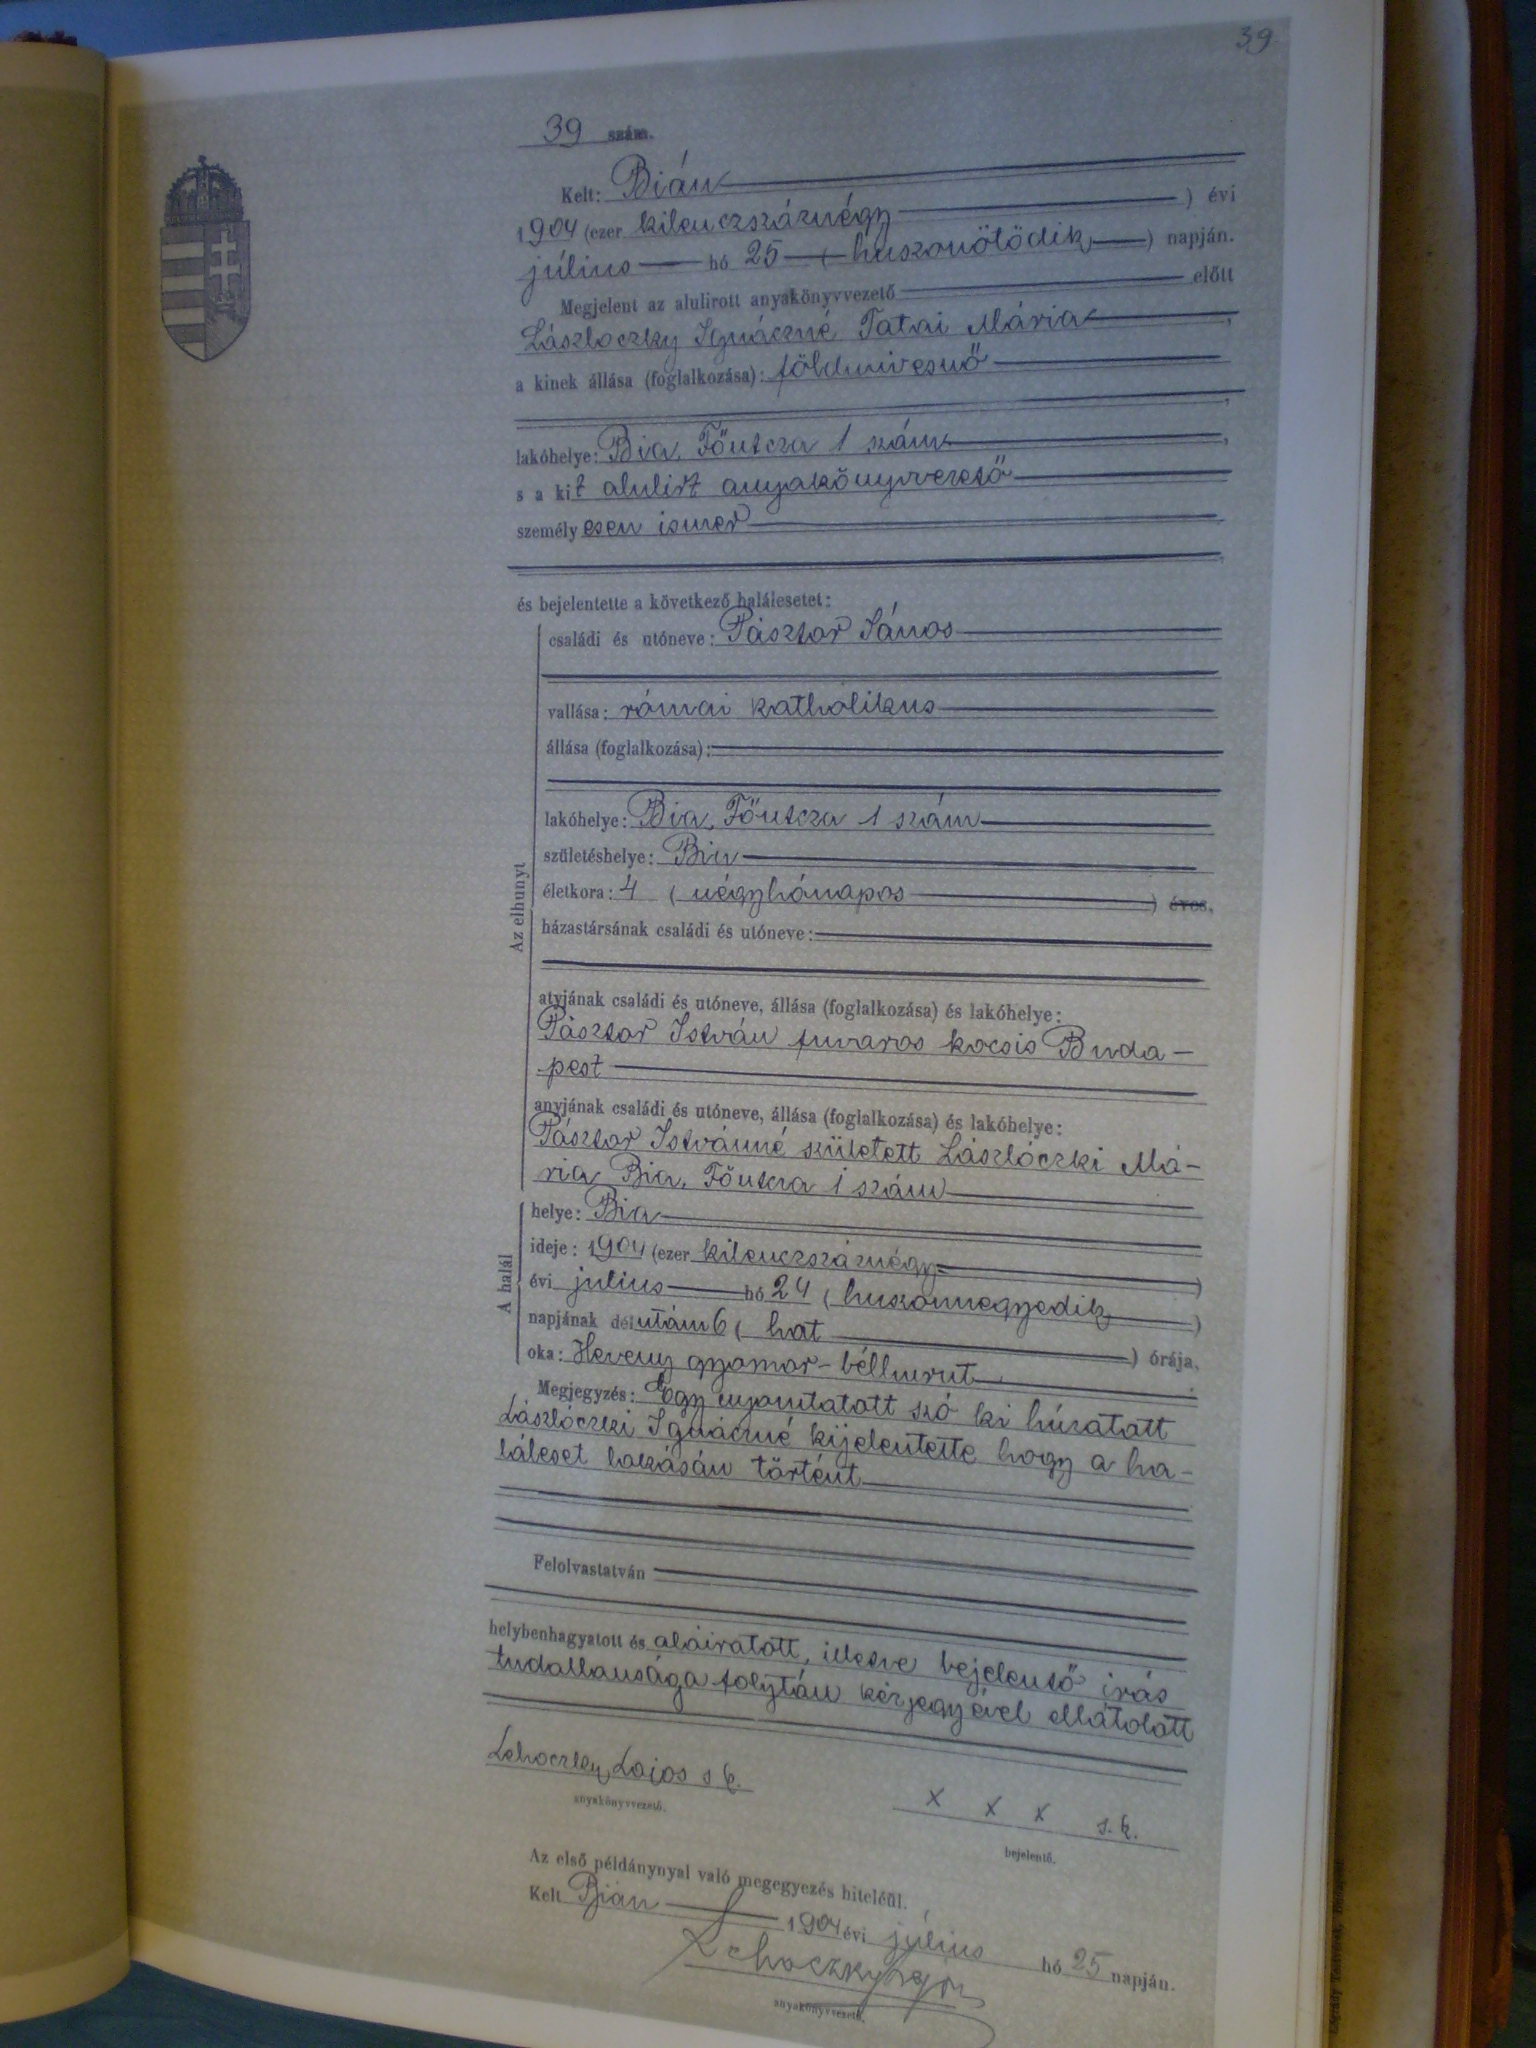 39
39 szám.
Kelt: Bián
1904 (ezer kilenczszáznégy ) évi
július hó 25 ( huszonötödik ) napján.
Megjelent az alulirott anyakönyvvezető előtt
Lászloczky Ignáczné Tatai Mária,
a kinek állása (foglalkozása): földmivesnő
lakóhelye: Bia, Főutcza 1 szám,
s a kit alulirt anyakönyvvezető
személyesen ismer
és bejelentette a következő halálesetet:
Az elhunyt
családi és utóneve: Pásztor János
vallása: római katholikus
állása (foglalkozása):
lakóhelye: Bia, Főutcza 1 szám
születéshelye: Bia
életkora: 4 ( négyhónapos ) éves,
házastársának családi és utóneve:
atyjának családi és utóneve, állása (foglalkozása) és lakóhelye:
Pásztor István fuvaros kocsis Buda-
pest
anyjának családi és utóneve, állása (foglalkozása) és lakóhelye:
Pásztor Istvánné született Lászlóczki Má-
ria Bia, Főutcza 1 szám
A halál
helye: Bia
ideje: 1904 (ezer kilenczszáznégy )
évi julius hó 24 ( huszonnegyedik )
napjának délután 6 ( hat ) órája,
oka: Heveny gyomor-bélhurut.
Megjegyzés: Egy nyomtatott szó ki húzatott
Lászlóczki Ignáczné kijelentette hogy a ha-
láleset lakásán történt
Felolvastatván
helybenhagyatott és aláiratott, illetve bejelentő irás
tudatlansága folytán kézjegyével ellátolatt
Lehoczky Lajos s k.
anyakönyvvezető.
x x x s. k.
bejelentő.
Az első példánynyal való megegyezés hiteléül.
Kelt Bián 1904 évi július hó 25 napján.
Lehoczky Lajos
anyakönyvvezető.